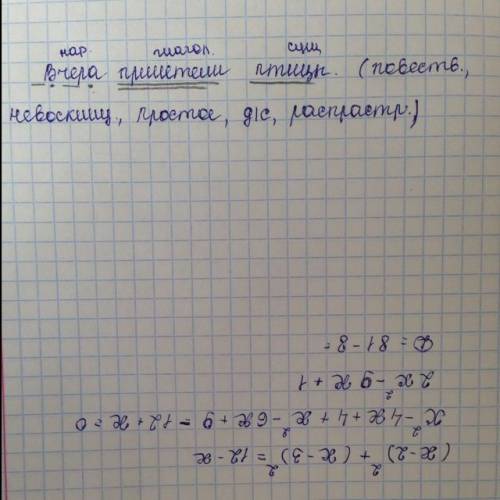 нар. глагол. сущ
Вчера прилетели птицы. (повеств.,
невосклиц., простое, д/с, распрастр.)
(x-2)² + (x-3)² = 12-x
x²-4x+4+x²-6x+9-12+x=0
2x²-9x+1
D = 81-8=